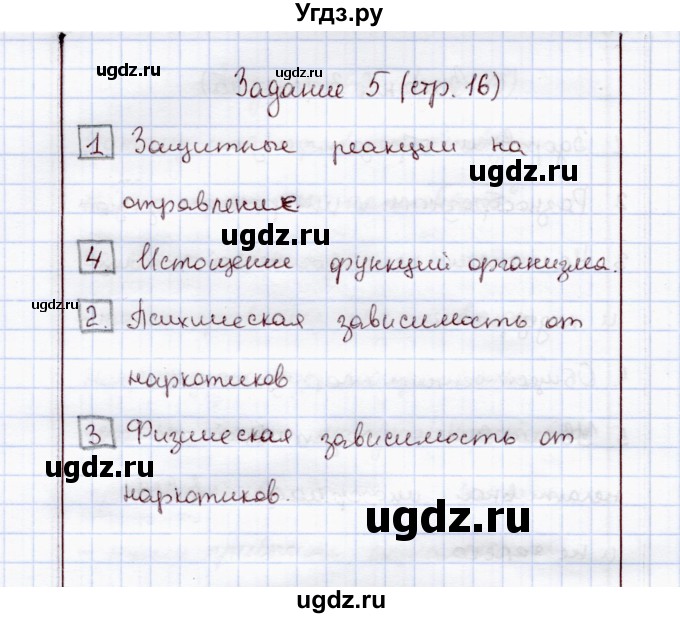 Угдз.ру
ugdz.ru
ugdz.ru
Задание 5 (стр. 16)
1 Защитные реакции на
ugdz.ru
отравление.
ugdz.ru
4. Истощение функций организма.
ugdz.ru
2. Психическая зависимость от
ugdz.ru
наркотиков
3 Физическая зависимость от
ugdz.ru
наркотиков.
ugdz.ru
ugdz.ru